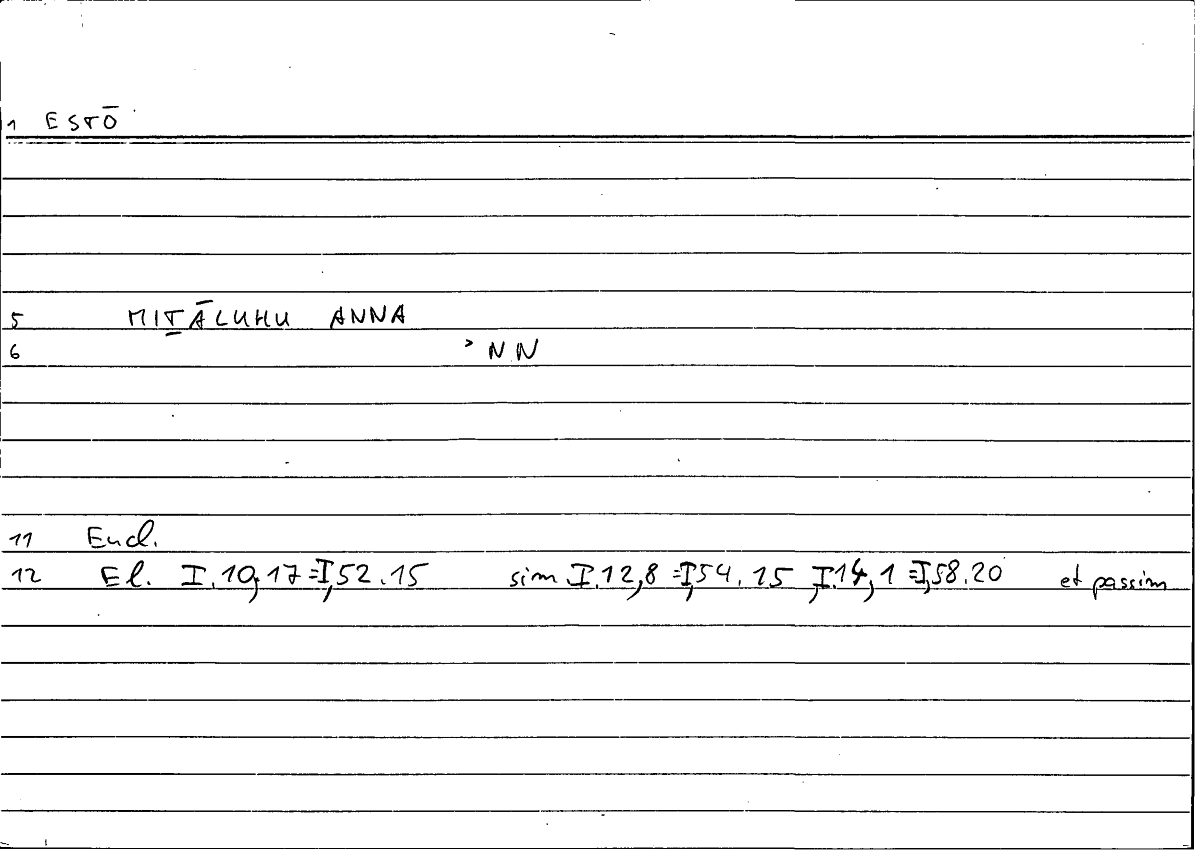 1 ESTŌ
5 MIṮĀLUHU ANNA
6 ʾNN
11 Eucl.
12 El. I.10,17=I,52.15 sim I.12,8=I,54.15, I.14,1=I,58.20 et passim